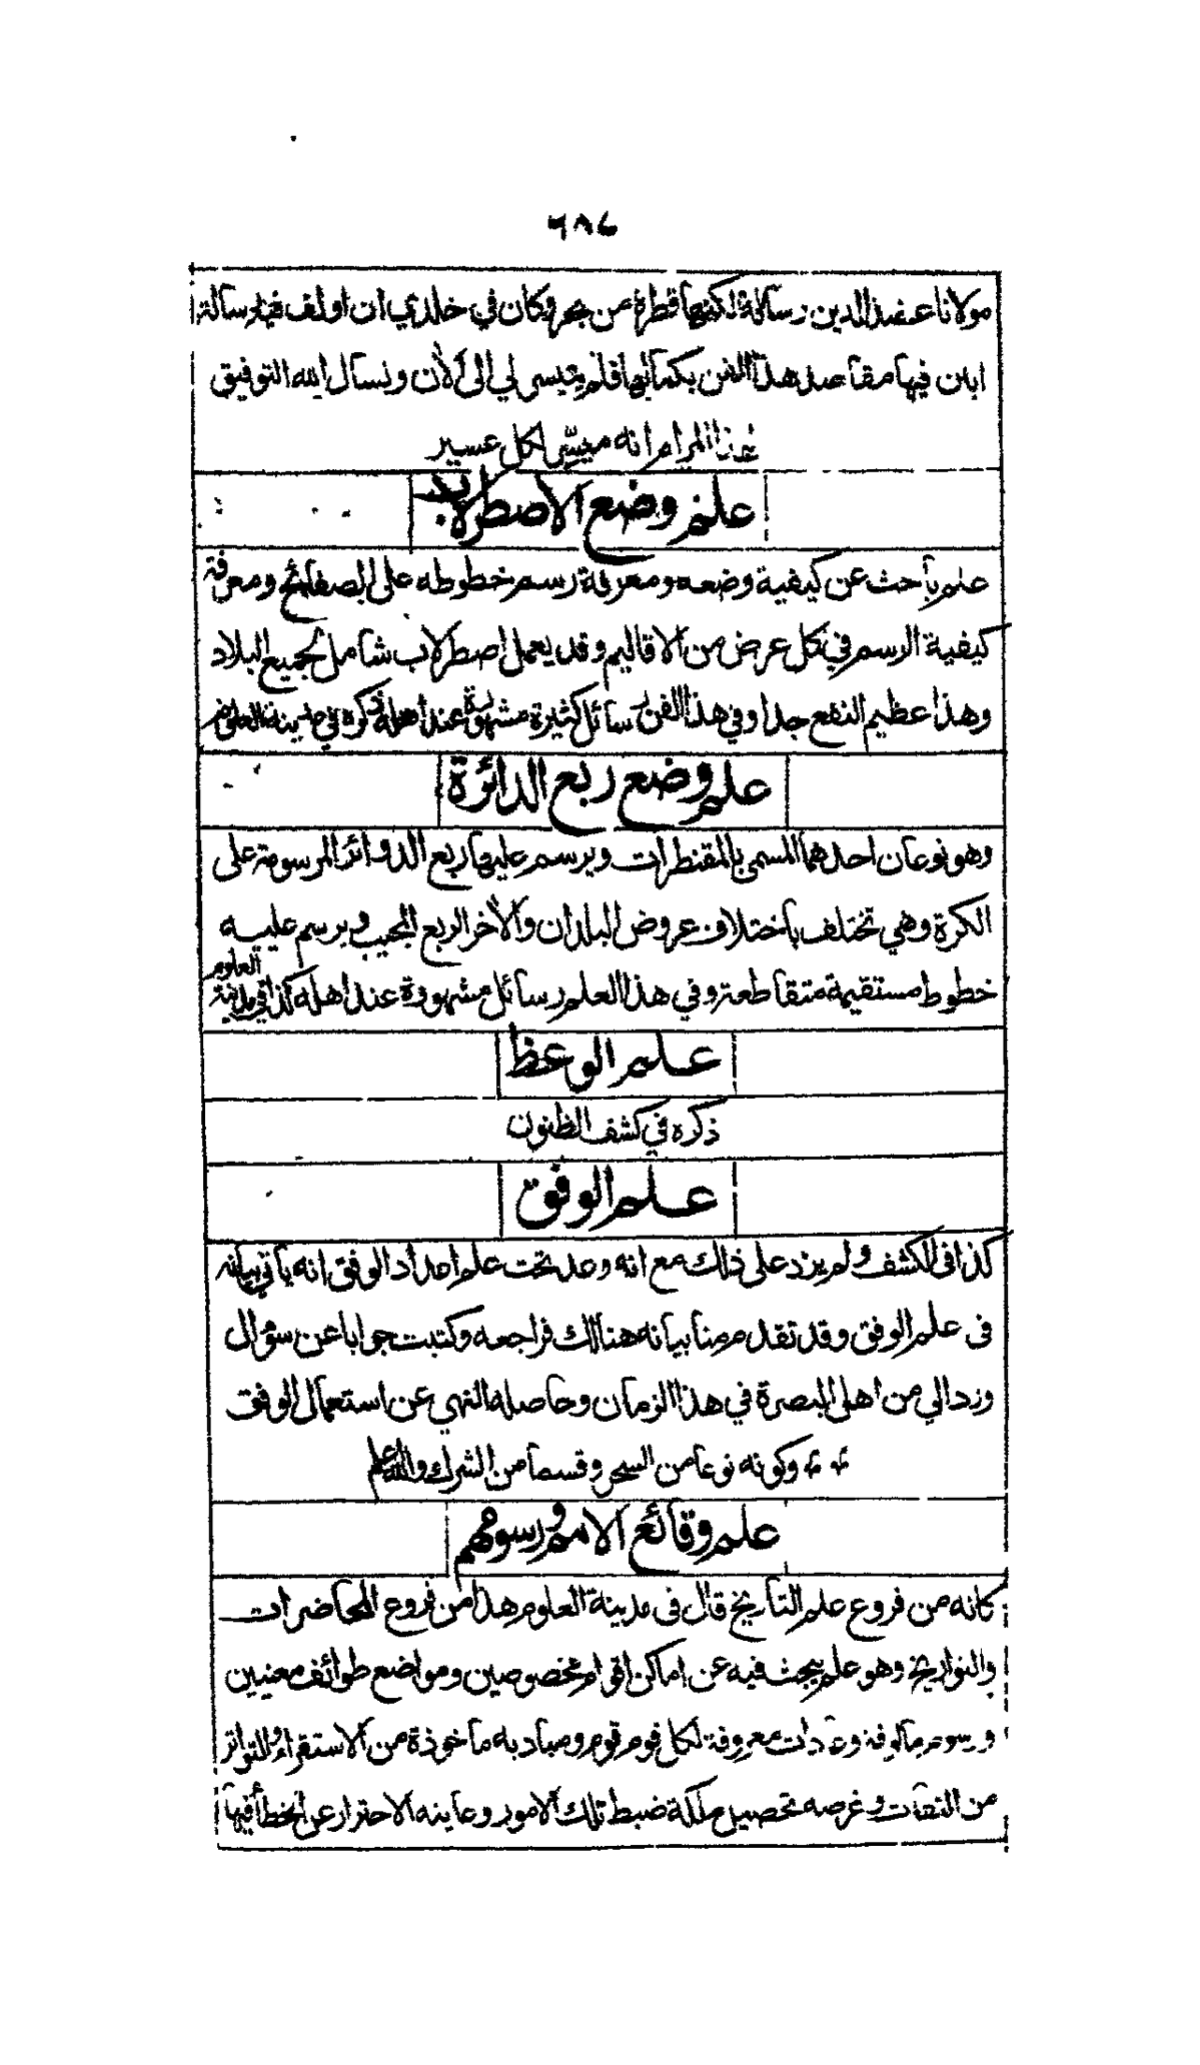 ٦٨٤
مولانا عضد الدين رسالة لكنها قطرة من بحر وكان في خلدي ان اولف فيه رسالة
ابين فيها مقاصد هذا الفن بكمالها فلم يتيسر لي الى الآن ونسأل الله التوفيق
المرام انه ميسّر لكل عسير
علم وضع الاصطرلاب
علم بأحث عن كيفية وضعه ومعرفة رسم خطوطه على الصفائح ومعرفة
كيفية الرسم في كل عرض من الاقاليم وقد يعمل اصطرلاب شامل لجميع البلاد
وهذا عظيم النفع جدا وفي هذا الفن رسائل كثيرة مشهورة عند أهله ذكره في مدينة العلوم
علم وضع ربع الدائرة
وهو نوعان احدهما المسمى بالمقنطرات ويرسم عليها ربع الدوائر المرسومة على
الكرة وهي تختلف باختلاف عروض البلدان والآخر الربع المجيب ويرسم عليه
خطوط مستقيمة متقاطعة وفي هذا العلم رسائل مشهورة عند اهله كذا في مدينة العلوم
علم الوعظ
ذكره في كشف الظنون
علم الوفق
كذا في الكشف ولم يزد على ذلك مع انه وعد تحت علم اعداد الوفق انه يأتي بيانه
في علم الوفق وقد تقدم منا بيانه هنالك فراجعه وكتبت جوابا عن سؤال
ورد الي من اهل البصرة في هذا الزمان وحاصله النهي عن استعمال الوفق
وكونه نوعا من السحر وقسما من الشرك والله اعلم
علم وقائع الامم ورسومهم
كانه من فروع علم التأريخ قال في مدينة العلوم هذا من فروع المحاضرات
والتواريخ وهو علم يبحث فيه عن اماكن اقوام مخصوصين ومواضع طوائف معنيين
ورسوم مألوفة وعادات معروفة لكل قوم قوم ومباديه مأخوذة من الاستقراء والتواتر
من الثقات وغرضه تحصيل ملكة ضبط تلك الامور وغايته الاحتراز عن الخطأ فيها